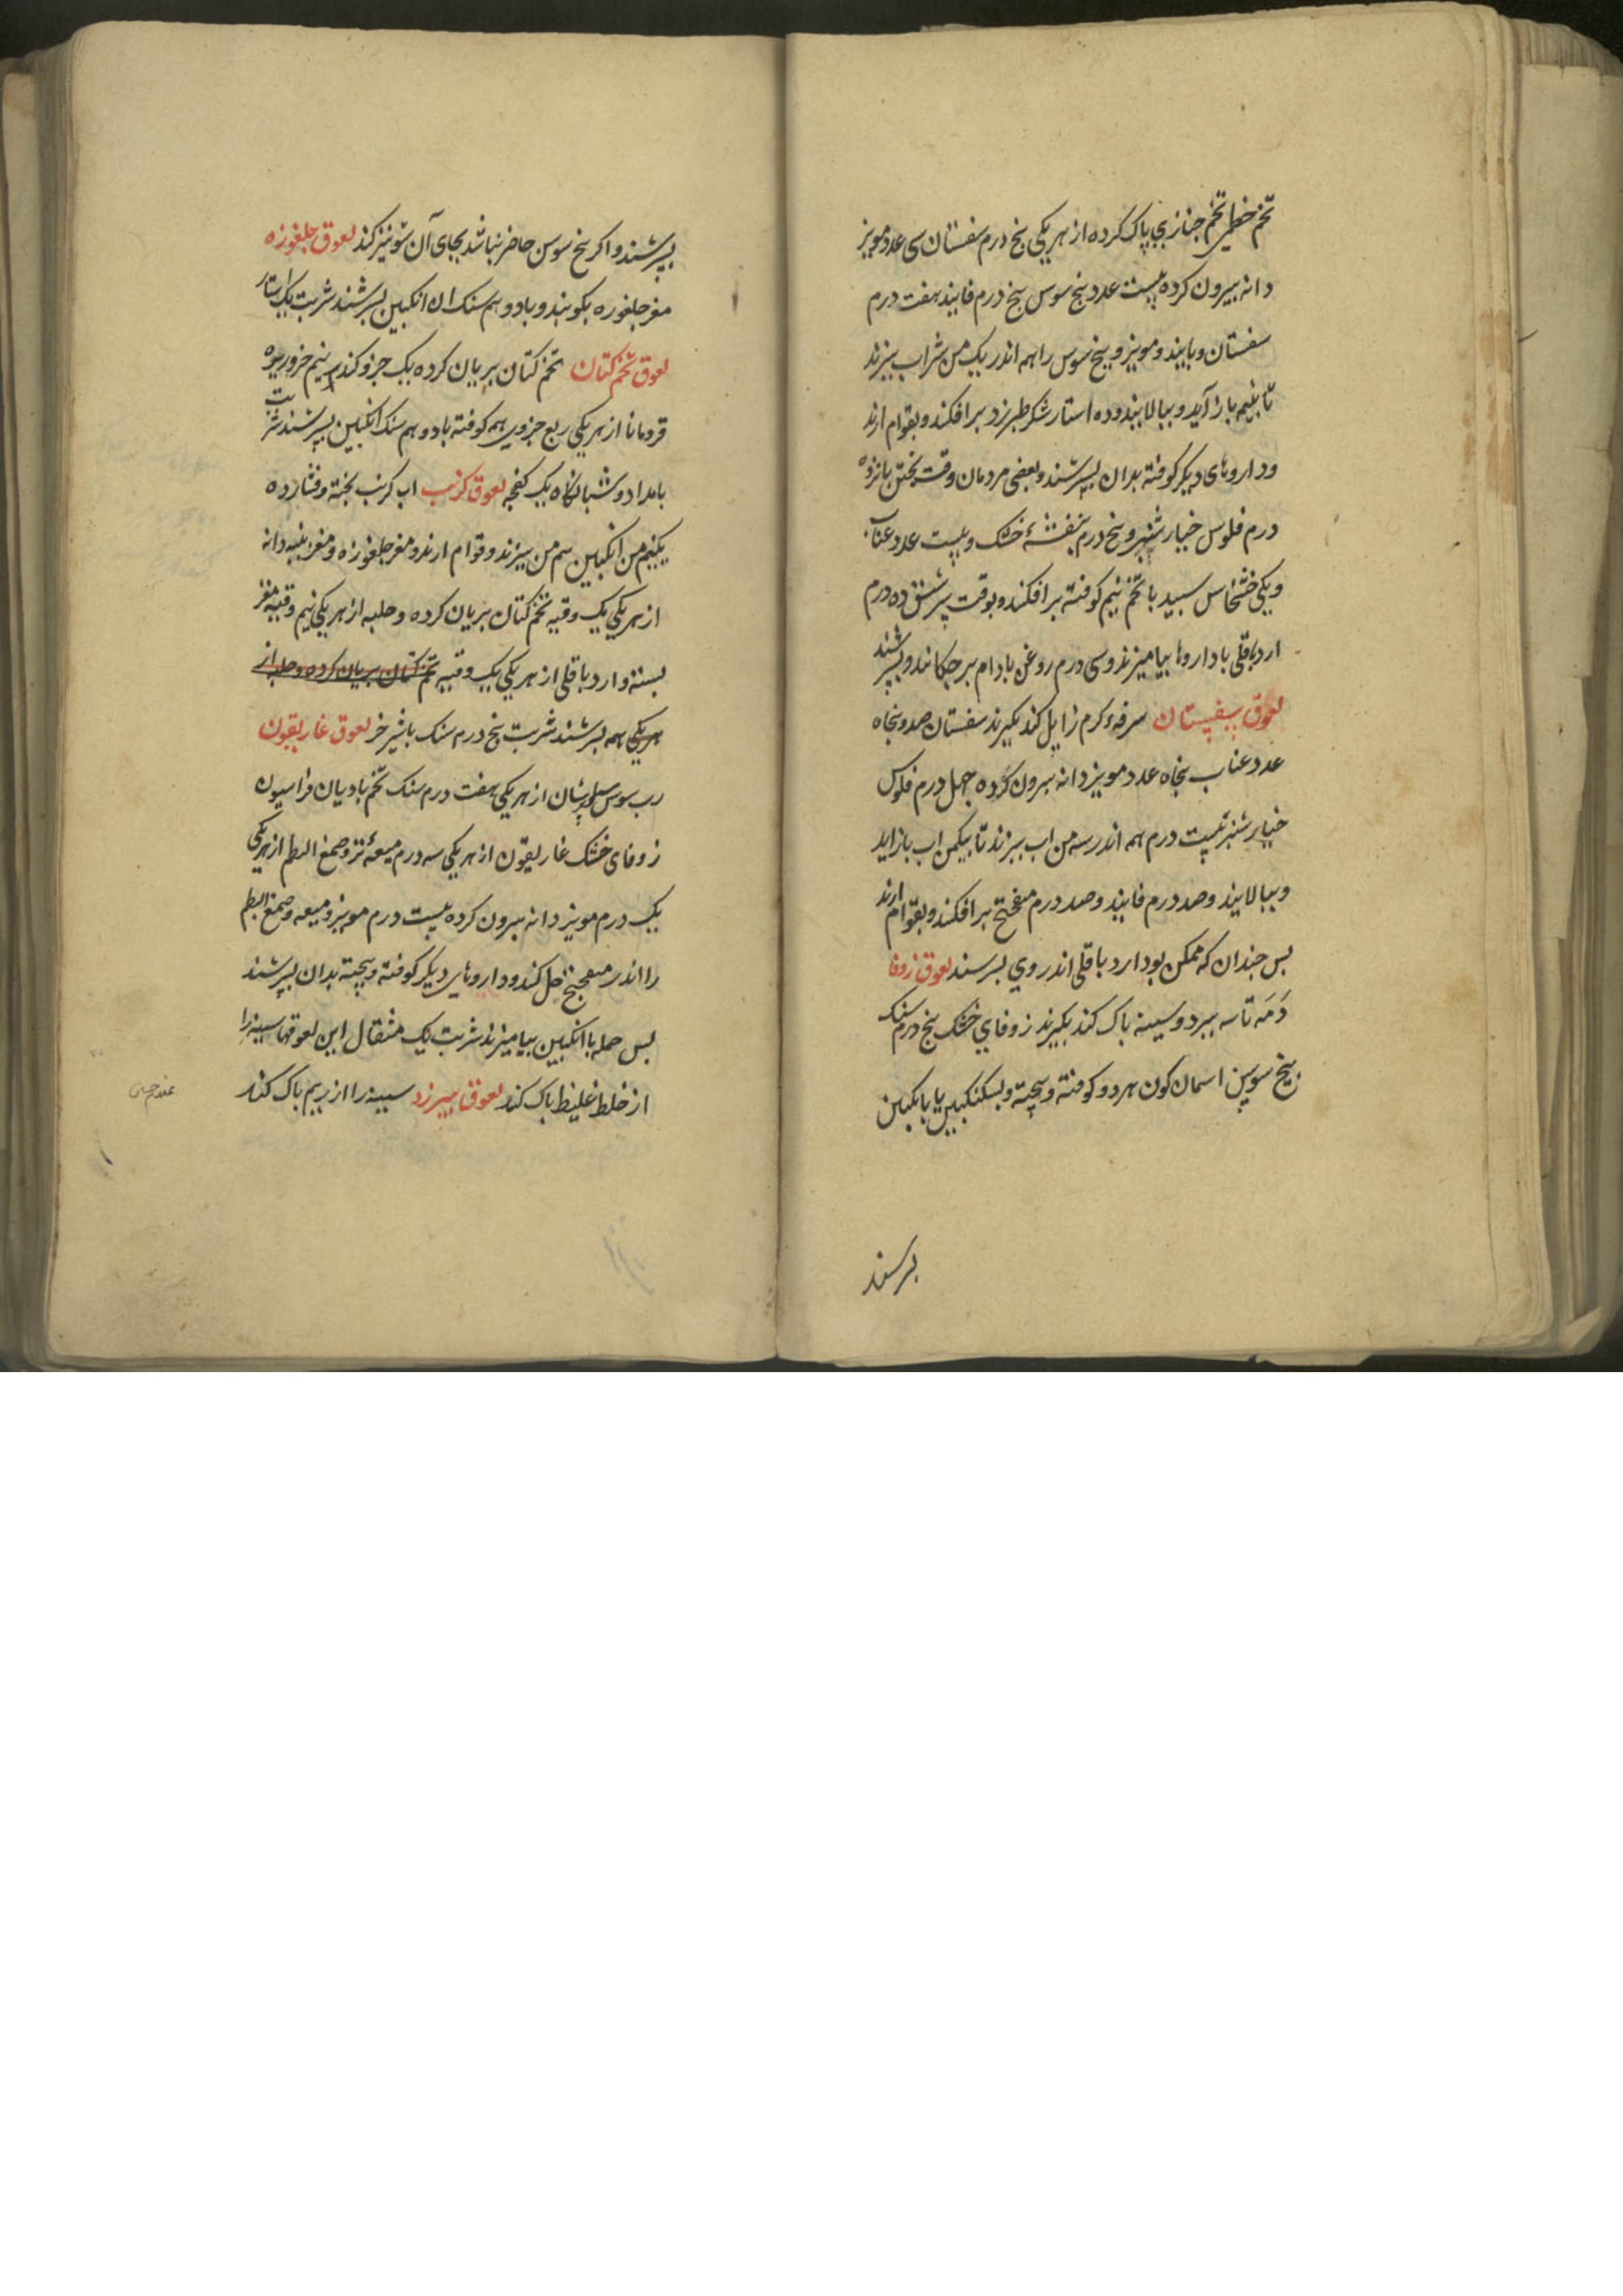 تخم خطمی تخم خبازی پاک کرده از هر یکی پنج درم سفستان سی عدد مویز
دانه بیرون کرده بیست عدد بیخ سوس پنج درم فانیذ هفت درم
سفستان و مویز و بیخ سوس را همه اندر یک من شراب بپزند
تا بنیم باز آید و ببالایند و ده استار شکر طبرزد برافکند و بقوام ارند
و داروهای دیکر کوفته بدان بسرشند و بعضی مردمان وقت پختن پانزده
درم فلوس خیار شنبر و پنج درم بنفشهٔ خشک و بیست عدد عناب
و یکی خشخاش سبید با تخم نیم کوفته برافکند و بوقت سرشتن ده درم
ارد باقلی با داروها بیامیزند و سی درم روغن بادام برچکانند و بسرشند
لعوق سفستان سرفهٔ کرم زایل کند بکیرند سفستان صد و پنجاه
عدد عناب پنجاه عدد مویز دانه بیرون کرده چهل درم فلوس
خیار شنبر بیست درم همه اندر سه من اب ببزند تا بیکمن اب باز اید
و ببالایند و صد درم فانیذ و صد درم میفختج برافکند و بقوام ارند
بس چندان که ممکن بود ارد باقلی اندر وی بسرشند لعوق زوفا
دمه تاسه ببرد و سینه باک کند بکیرند زوفای خشک پنج درم سنک
بیخ سوسن اسمان کون هر دو کوفته و بیخته و بسکنکبین یا بانکبین
برسند
بسرشند و اکر بیخ سوسن حاضر نباشد بجای آن شونیز کند لعوق جلغوزه
مغز جلغوزه بکوبند و با دو هم سنک ان انکبین بسرشند شربت یک استار
لعوق تخم کتان تخم کتان بریان کرده یک جزو کندر نیم جزو
قردمانا از هر یکی ربع جزوی همه کوفته با دو هم سنک انکبین بسرشند شربت
بامداد و شبانکاه یک کفچه لعوق کرنب اب کرنب بخته و فشارده
یکنیم من انکبین سه من ببزند و قوام ارند و مغز جلغوزه و مغز پنبه دانه
از هر یکی یک وقیه تخم کتان بریان کرده و حلبه از هر یکی نیم وقیه مغز
بسته و ارد باقلی از هر یکی یک وقیه تخم کتان بریان کرده و حلبه از
هر یکی همه بسرشند شربت پنج درم سنک با شیر خر لعوق غاریقون
رب سوس از هر یکی هفت درم سنک تخم بادیان فراسیون
زوفای خشک غاریقون از هر یکی سه درم میعهٔ تر و صمغ البطم از هر یکی
یک درم مویز دانه بیرون کرده بیست درم مویز و میعه و صمغ البطم
را اندر میفختج حل کند و داروهای دیکر کوفته و بیخته بدان بسرشند
بس جمله با انکبین بیامیزند شربت یک مثقال این لعوقها سینه را
از خلط غلیظ باک کند لعوق بیرزد سینه را از ریم باک کند